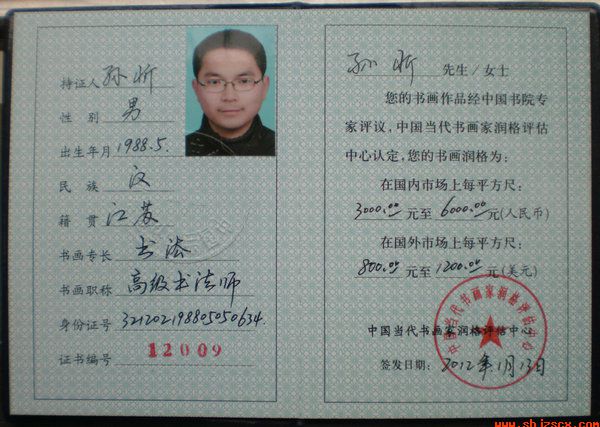 持证人 孙昕
性 别 男
出生年月 1988.5.
民 族 汉
籍 贯 江苏
书画专长 书法
书画职称 高级书法师
身份证号 321202198805050634.
证书编号 12009
孙昕 先生/女士
您的书画作品经中国书院专
家评议，中国当代书画家润格评估
中心认定，您的书画润格为：
在国内市场上每平方尺：
3000.00 元至 6000.00 元(人民币)
在国外市场上每平方尺：
800.00 元至 1200.00 元(美元)
中国当代书画家润格评估中心
中国当代书画家润格评估中心
签发日期：2012年1月13日
www.shjzscx.com